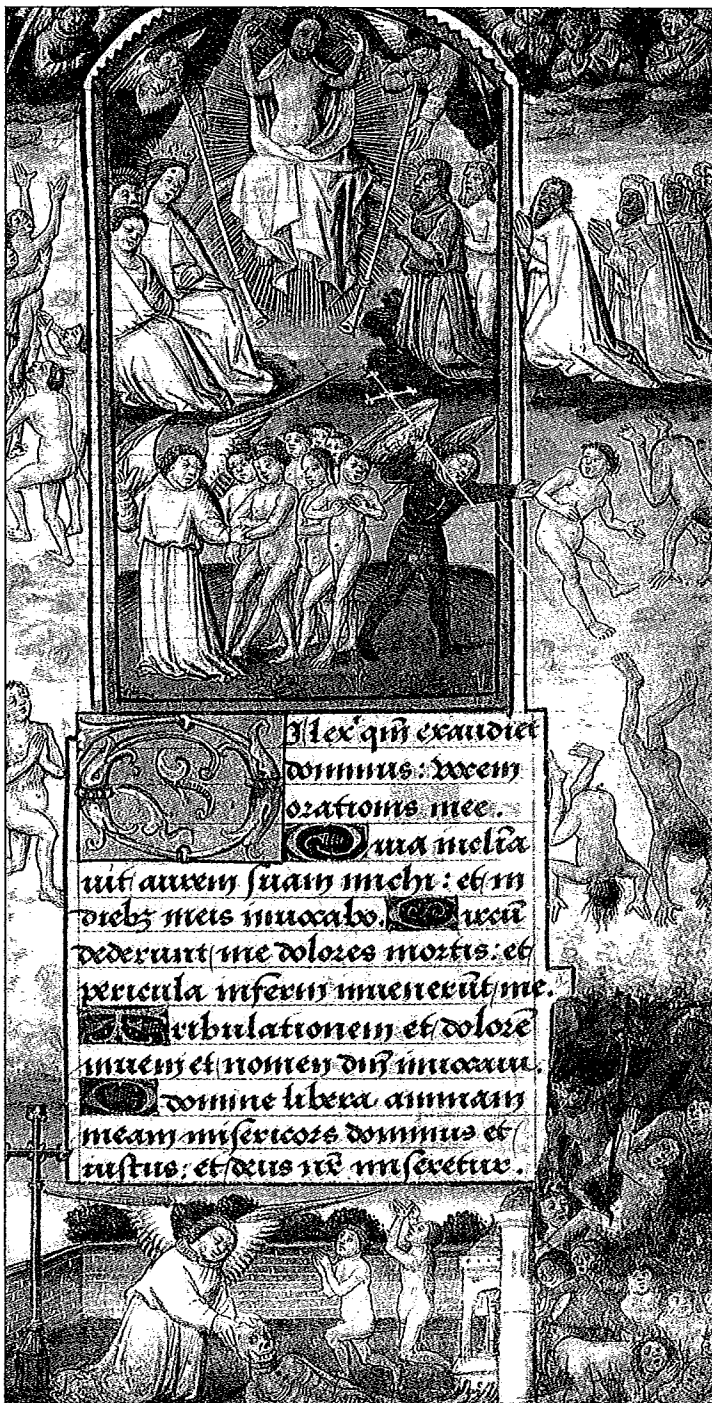 Dilexi qm̄ exaudiet
dominus: vocem
orationis mee.
Quia inclīa
uit aurem suam michi: et in
diebꝫ meis inuocabo. Circū
dederunt me dolores mortis: et
pericula inferni inuenerūt me.
Tribulationem et dolorē
inueni et nomen dnī inuocaui.
O domine libera animam
meam misericors dominus et
iustus: et deus nr̄ miseretur.